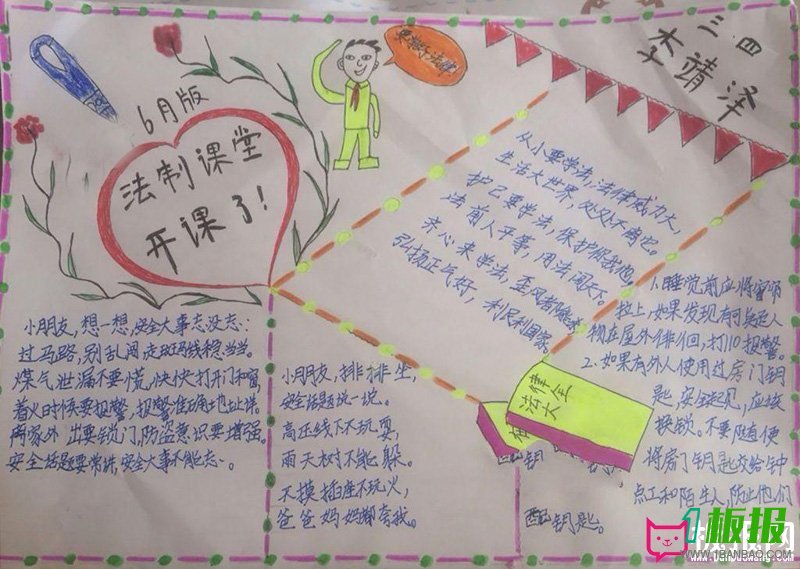 三四
李靖泽
6月版
法制课堂
开课了!
从小要学法,法律威力大,
生活大世界,处处不离它。
护己要学法,保护你我他,
法前人平等,用法闯天下。
齐心来学法,歪风
弘扬正气好,利民利国家。
小朋友,想一想,安全大事忘没忘:
过马路,别乱闯,走斑马线稳当当。
煤气泄漏不要慌,快快打开门和窗,
着火时候要报警,报警准确地址讲。
离家外出要锁门,防盗意识要增强。
安全话题要常讲,安全大事不能忘。
小朋友,排排坐,
安全话题说一说。
高压线下不玩耍,
雨天树下不能躲。
不摸插座不玩火,
爸爸妈妈都夸我。
1.睡觉前应将窗帘
拉上,如果发现有可疑人
物在屋外徘徊,打110报警。
2.如果有外人使用过房门钥
匙,安全起见,应该
换锁。不要随便
将房门钥匙交给钟
点工和陌生人,防止他们
配钥匙。
法律
大全
1板报
WWW.1BANBAO.COM